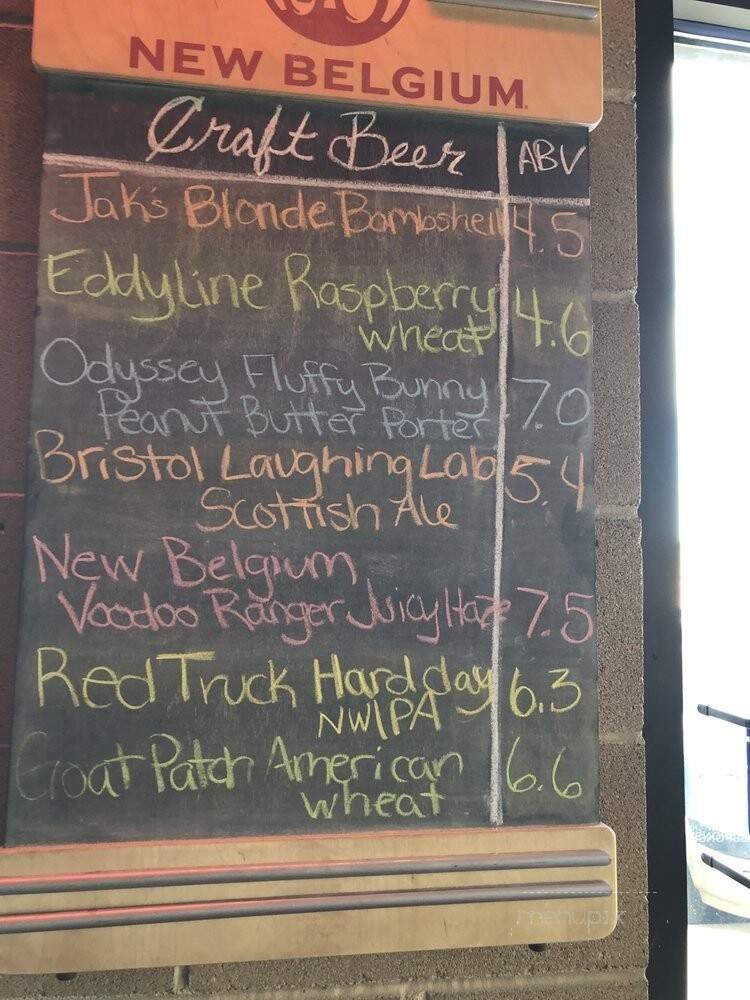 NEW BELGIUM
Craft Beer ABV
Jak's Blonde Bombshell 4.5
Eddyline Raspberry
wheat 4.6
Odyssey Fluffy Bunny
Peanut Butter Porter 7.0
Bristol Laughing Lab 5.4
Scottish Ale
New Belgium
Voodoo Ranger Juicy Haze 7.5
Red Truck Hard day 6.3
NWIPA
Goat Patch American 6.6
wheat
menupix